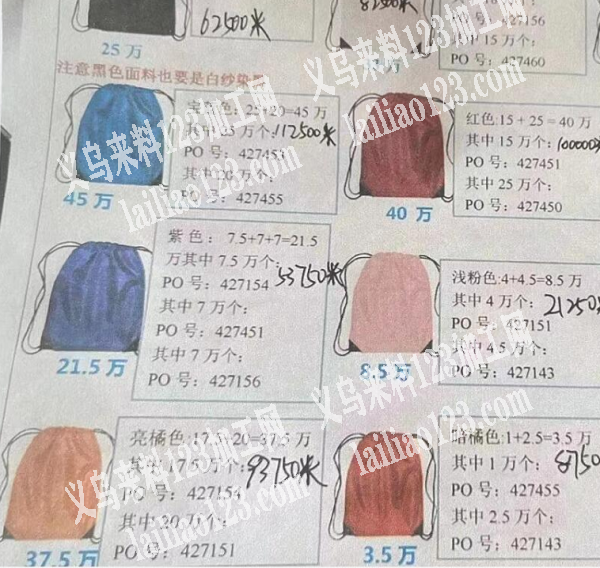 62500米
25 万
427156
其中 15 万个:
PO 号: 427460
注意黑色面料也要是白纱染
色: 25+20=45 万
112500米
PO 号: 427455
其中 20 万个:
PO 号: 427455
45 万
红色:15 + 25 = 40 万
其中 15 万个:
PO 号: 427451
其中 25 万个:
PO 号: 427450
40 万
紫 色: 7.5+7+7=21.5
万其中 7.5 万个:
53750米
PO 号: 427154
其中 7 万个:
PO 号: 427451
其中 7 万个:
PO 号: 427156
21.5 万
浅粉色:4+4.5=8.5 万
其中 4 万个:
21250米
PO 号: 427151
其中 4.5 万个:
PO 号: 427143
8.5 万
亮橘色:17.5+20=37.5 万
其中 17.5 万个:
93750米
PO 号: 427154
其中 20 万个:
PO 号: 427151
37.5 万
暗橘色:1+2.5=3.5 万
其中 1 万个:
8750
PO 号: 427455
其中 2.5 万个:
PO 号: 427143
3.5 万
义乌来料123加工网
lailiao123.com
义乌来料123加工网
lailiao123.com
义乌来料123加工网
lailiao123.com
义乌来料123加工网
lailiao123.com